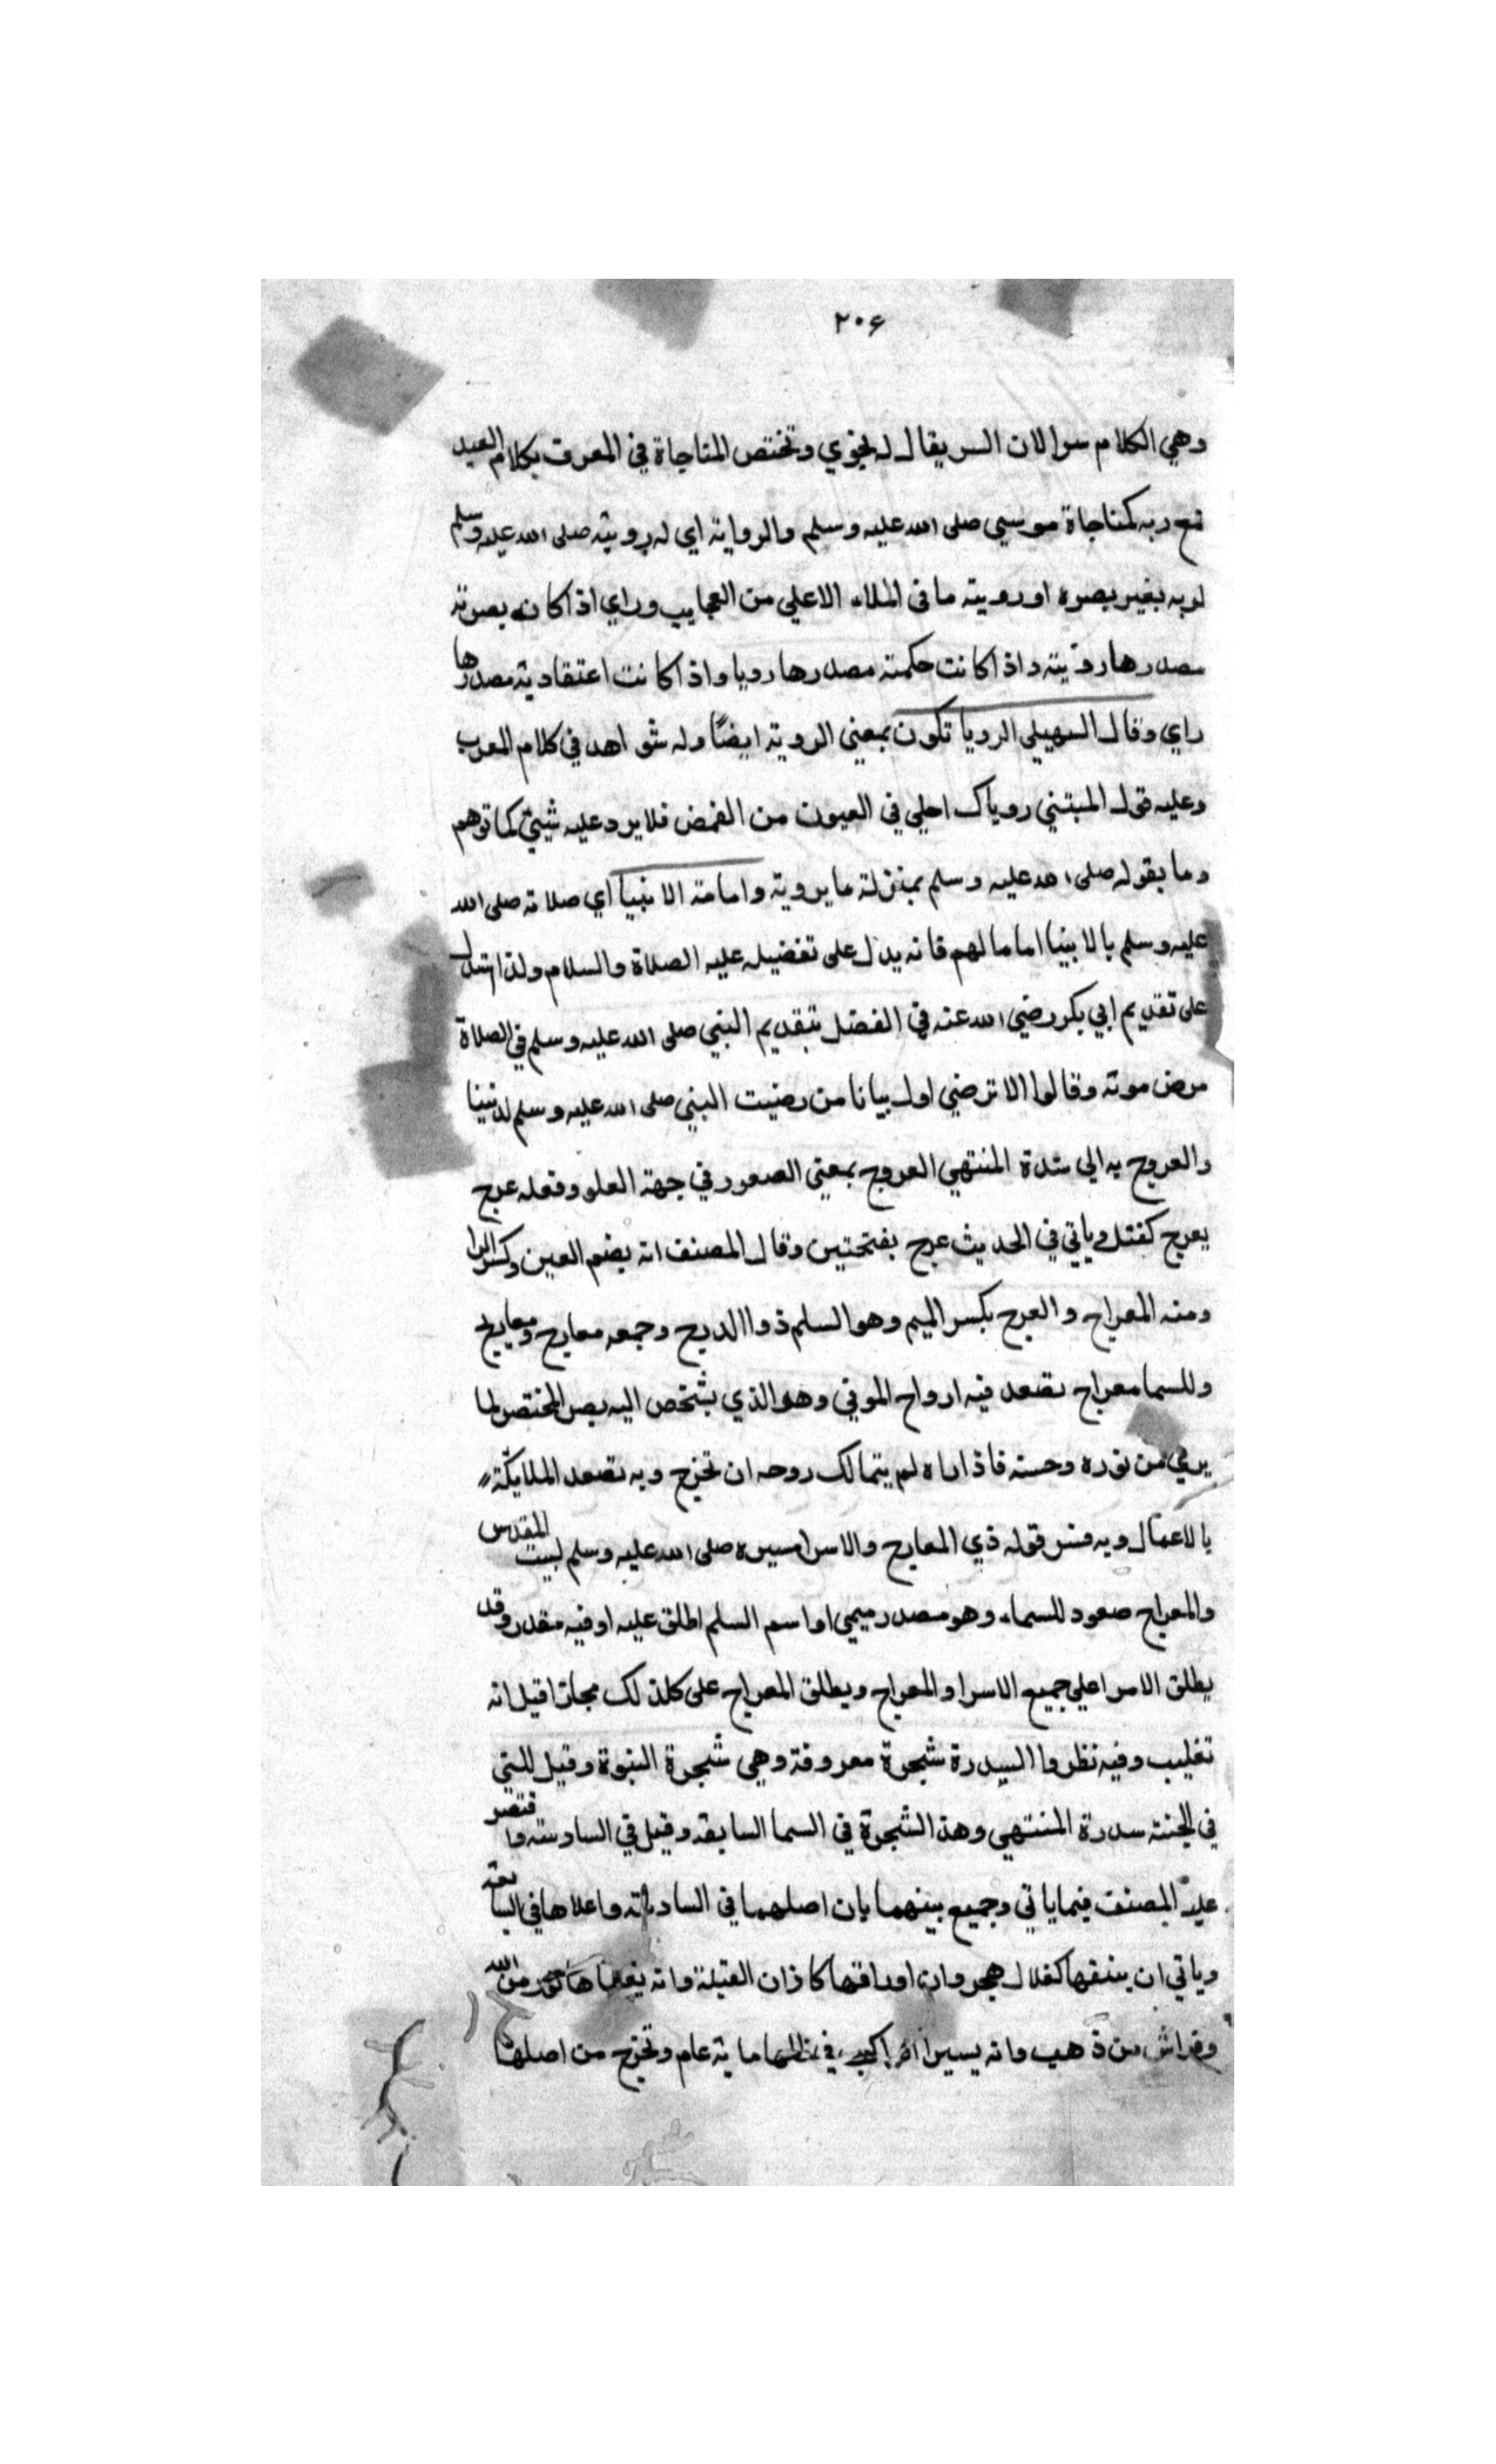 ٢٠٤
وهي الكلام سرا لان السر يقال له نجوي وتختص المناجاة في العرف بكلام العبد
مع ربه كمناجاة موسي صلى الله عليه وسلم والرواية اي له رويته صلى الله عليه وسلم
لربه بغير بصره او رويته ما في الملاء الاعلي من العجايب وراي اذا كانت بصرية
مصدرها روية واذا كانت حكمية مصدرها رويا واذا كانت اعتقادية مصدرها
راي وقال السهيلي الرويا تكون بمعني الروية ايضًا وله شواهد في كلام العرب
وعليه قول المتبني روياك احلي في العيون من الغمض فلا يرد عليه شيئ كما توهم
وما بقوله صلى الله عليه وسلم بمنزلة ما يرويه وامامة الانبيا اي صلاته صلى الله
عليه وسلم بالانبيا اماما لهم فانه يدل على تفضيله عليه الصلاة والسلام ولذا استدل
على تقديم ابي بكر رضي الله عنه في الفضل بتقديم النبي صلى الله عليه وسلم في الصلاة
مرض موته وقالوا الا ترضي اول بيانا من رضيت النبي صلى الله عليه وسلم لديننا
والعروج به الي سدرة المنتهي العروج بمعني الصعود في جهة العلو وفعله عرج
يعرج كقتل وياتي في الحديث عرج بفتحتين وقال المصنف انه بضم العين وكسر الرا
ومنه المعراج والعرج بكسر الميم وهو السلم ذو االدرج وجمعه معارج ومعاريج
وللسما معراج تصعد فيه ارواح الموتي وهو الذي يشخص اليه بصر المختصر لما
يري من نوره وحسنه فاذا راه لم يتمالك روحه ان تخرج وبه تصعد الملايكة
بالاعمال وبه فسر قوله ذي المعارج والاسرا مسيره صلى الله عليه وسلم لبيت المقدس
والمعراج صعود للسماء وهو مصدر ميمي او اسم السلم اطلق عليه او فيه مقدر وقد
يطلق الاسرا علي جميع الاسرا والمعراج ويطلق المعراج على كل ذلك مجازا قيل انه
تغليب وفيه نظر والسدرة شجرة معروفة وهي شجرة النبوة وقيل للتي
في الجنة سدرة المنتهي وهذه الشجرة في السما السابعة وقيل في السادسة واقتصر
عليه المصنف فيما ياتي وجميع بينهما بان اصلهما في السادسة واعلاها في السابعة
وياتي ان نبقها كقلال هجر وان اوراقها كاذان الفيلة وانه يغشاها نور من الله
وفراش من ذهب وانه يسير الراكب في ظلها ماية عام وتخرج من اصلها